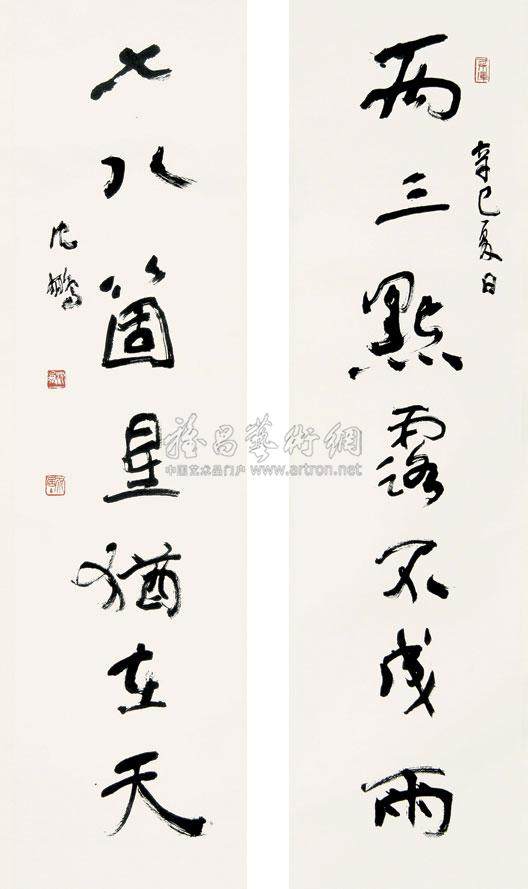 辛巳夏日
兩三點露不成雨
七八箇星猶在天
沈鵬
雅昌藝術網
中国艺术品门户 www.artron.net